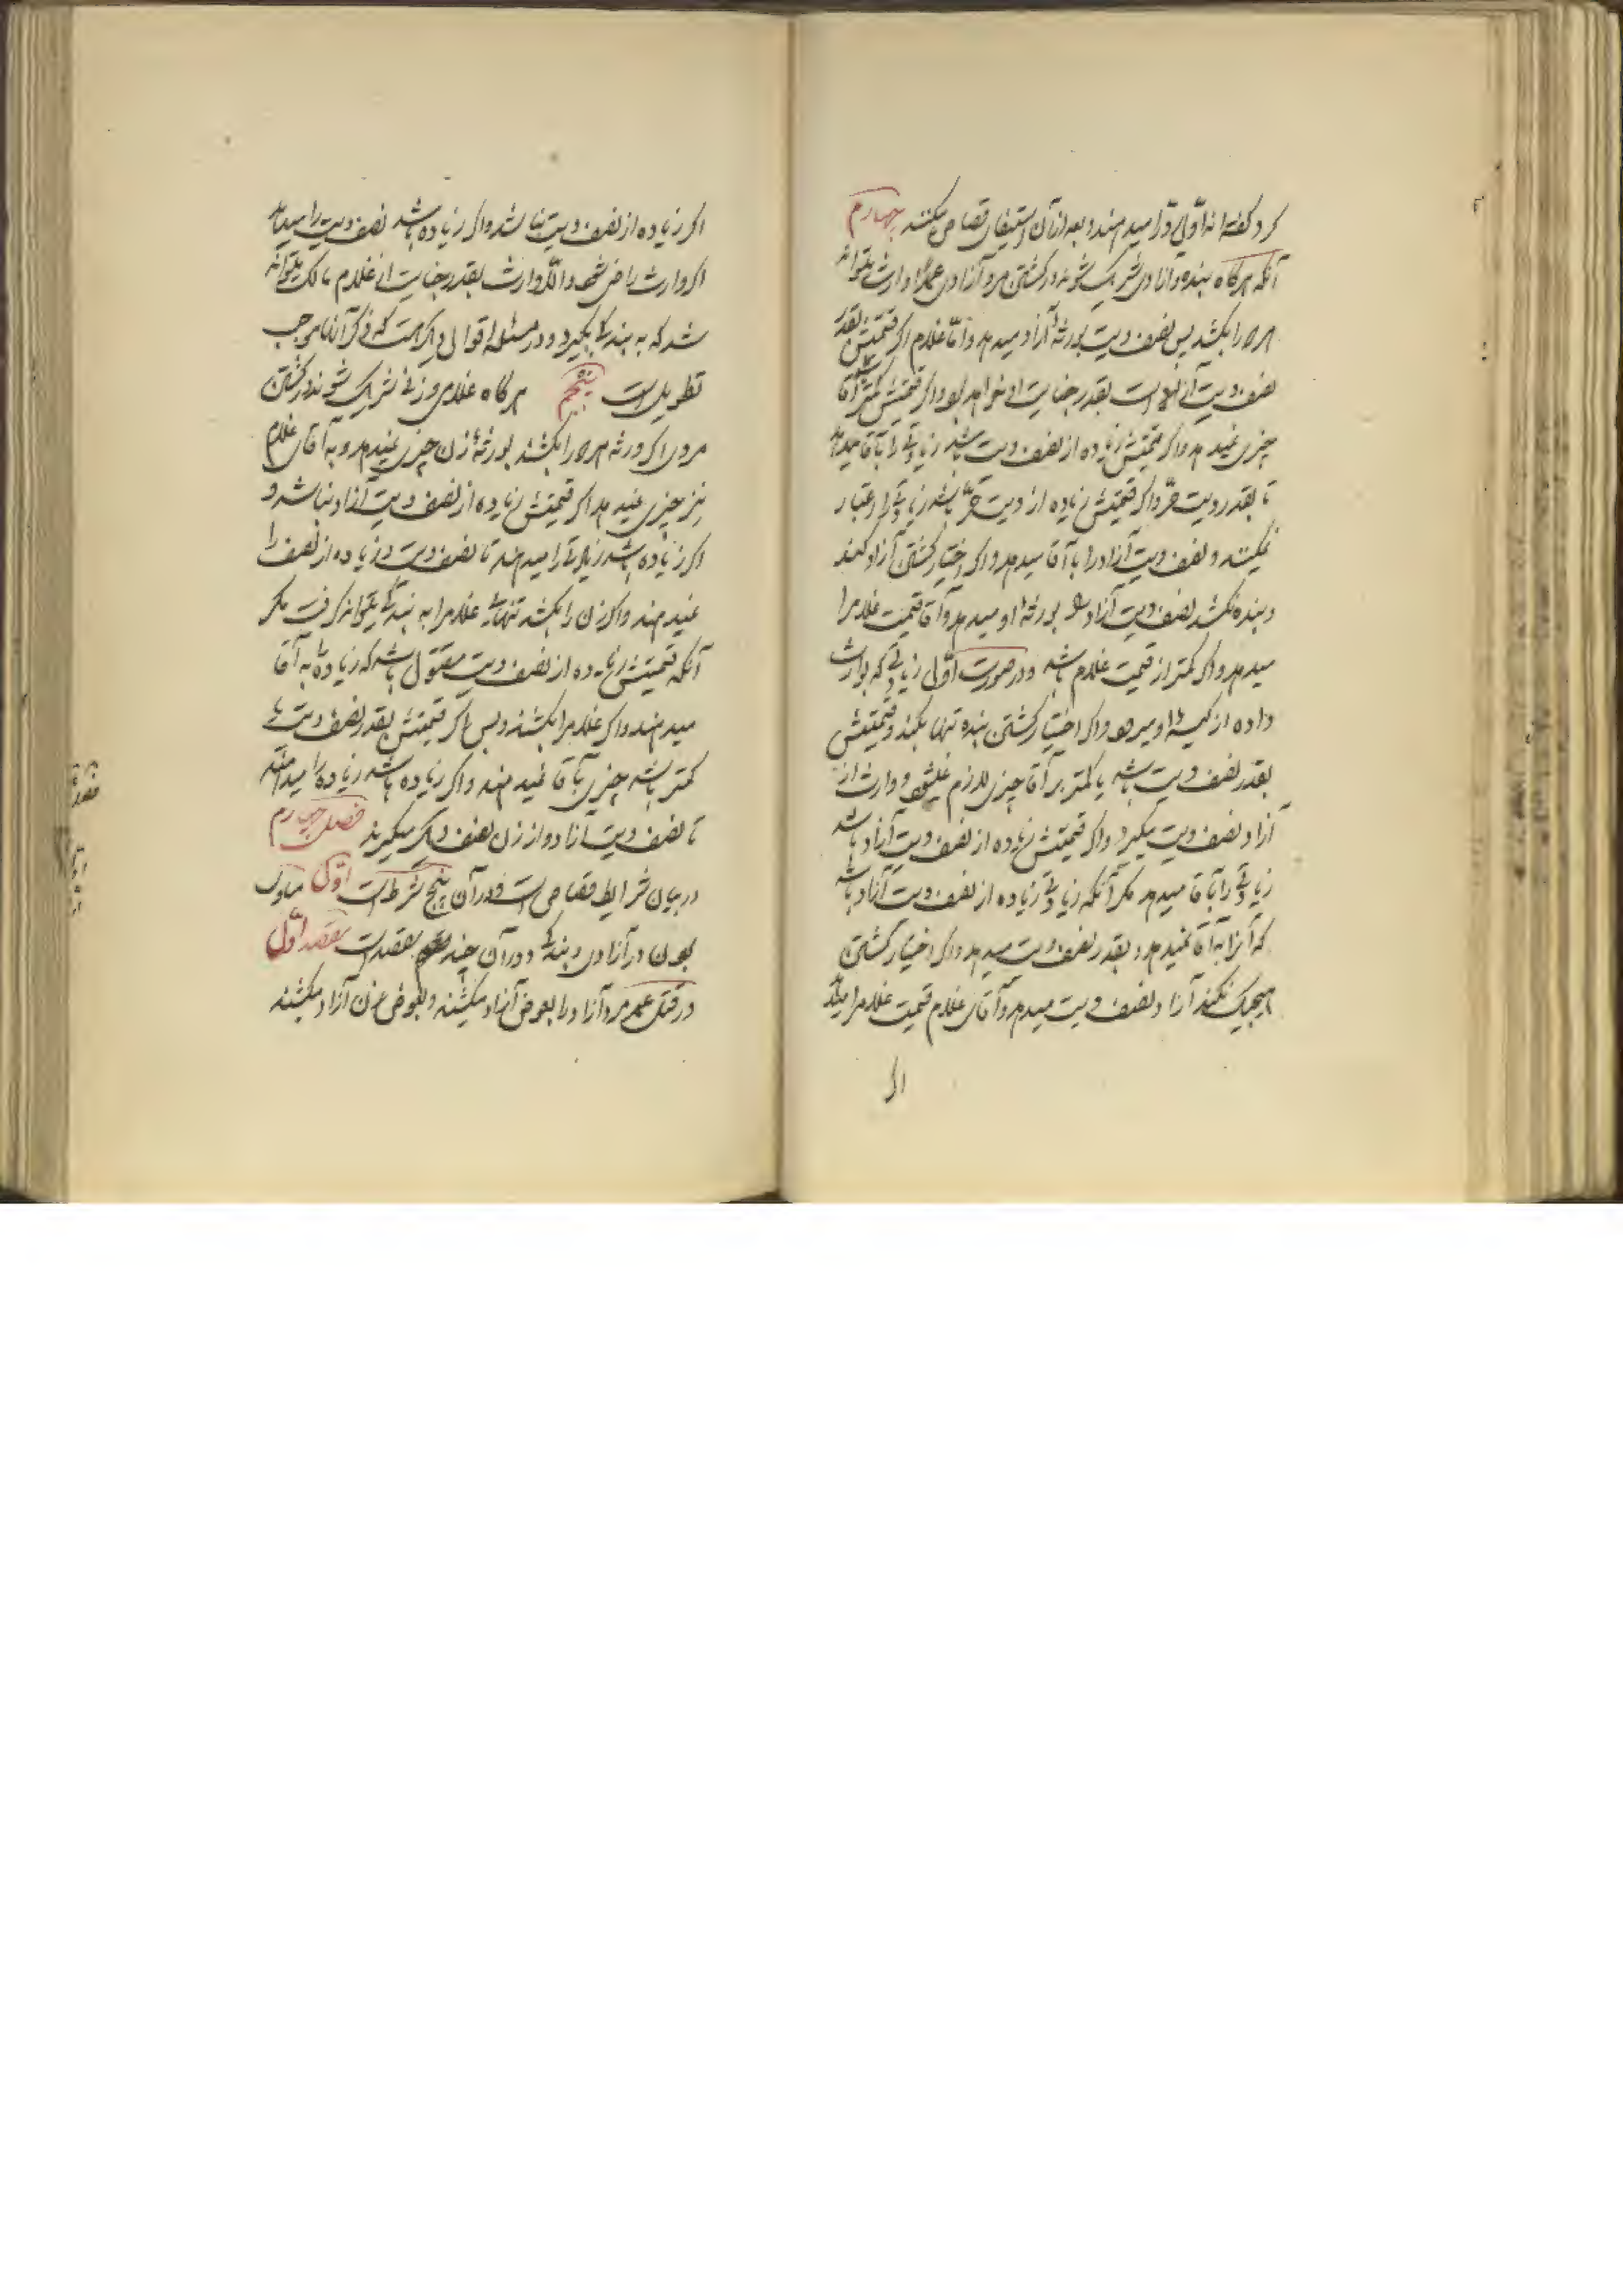 کرد گفته‌اند اوّلی رد را میدهند و بعد از آن استیفای قصاص میکنند چهارم
آنکه هرگاه بنده و آزادی شریک شوند در کشتن مرد آزادی عمدًا وارث میتواند
هر دو را بکشد پس نصف دیت بورثهٔ آزاد میدهد و امّا غلام اگر قیمتش بقدر
نصف دیت است بقدر جنایت او خواهد بود و اگر قیمتش کمتر است آقا
چیزی نمیدهد و اگر قیمتش زیاده از نصف دیت باشد زیادتی را بآقا میدهد
تا بقدر دیت حرّ و اگر قیمتش زیاده از دیت حرّ باشد زیادتی را اعتبار
نمیکنند و نصف دیت آزاد را بآقا میدهد و اگر اختیار کشتن آزاد کند
و بنده نکشد نصف دیت آزاد بورثهٔ او میدهد و آقا قیمت غلام را
میدهد و اگر کمتر از قیمت غلام باشد و در صورت اوّل زیادتی که بوارث
داده از کیسهٔ او میرود و اگر اختیار کشتن بنده تنها بکند و قیمتش
بقدر نصف دیت باشد یا کمتر بر آقا چیزی لازم نمیشود و وارث از
آزاد نصف دیت میگیرد و اگر قیمتش زیاده از نصف دیت آزاد باشد
زیادتی را بآقا میدهد مگر آنکه زیادتی زیاده از نصف دیت آزاد باشد
که آنرا به آقا نمیدهد و بقدر نصف دیت میدهد و اگر اختیار کشتن
هیچیک نکند آزاد نصف دیت میدهد و آقای غلام قیمت غلام را میدهد
اگر
اگر زیاده از نصف دیت نباشد و اگر زیاده باشد نصف دیت را میدهد
اگر وارث راضی شود و الّا وارث بقدر جنایت از غلام مالک میتواند
شد که به بندگی بگیرد و در مسئله اقوالی دیگر هست که ذکر آنها موجب
تطویل است پنجم هرگاه غلامی و زنی شریک شوند در کشتن
مردی اگر ورثه هر دو را بکشند بورثهٔ زن چیزی نمیدهد و به آقای غلام
نیز چیزی نمیدهد اگر قیمتش زیاده از نصف دیت آزاد نباشد و
اگر زیاده باشد زیادتی را میدهند تا نصف دیت و زیاده از نصف را
نمیدهند و اگر زن را بکشند تنها غلام را به بندگی میتواند گرفت مگر
آنکه قیمتش زیاده از نصف دیت مقتول باشد که زیاده را به آقا
میدهند و اگر غلام را بکشند و بس اگر قیمتش بقدر نصف دیت یا
کمتر باشد چیزی بآقا نمیدهند و اگر زیاده باشد زیاده را میدهند
تا نصف دیت آزاد و از زن نصف دیگر میگیرند فصل چهارم
در بیان شرایط قصاص است و در آن پنج شرط است اوّل مساوی
بودن در آزادی و بندگی و در آن چند مقصد است مقصد اوّل
در قتل عمد مرد آزاد را بعوض آزاد میکشند و بعوض زن آزاد میکشند